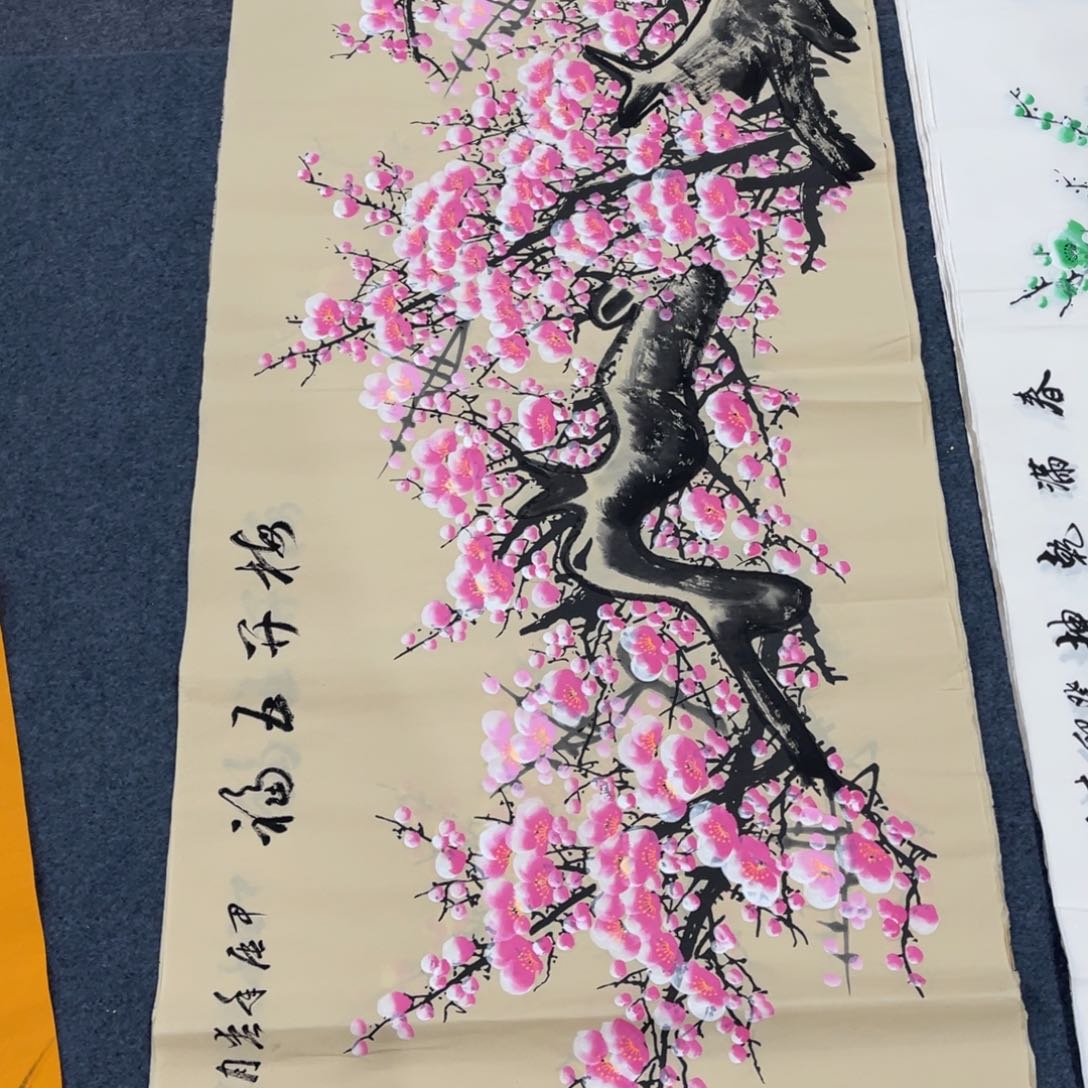 梅开五福
甲辰年兰月
春满乾坤